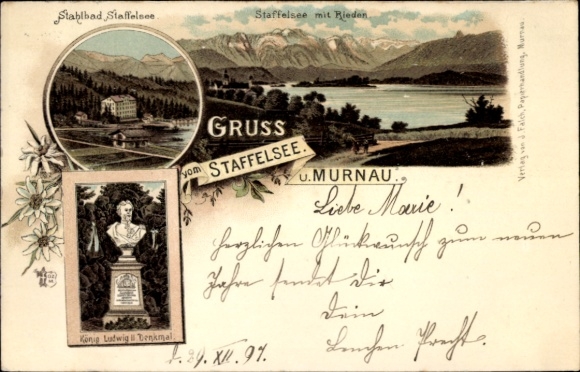 Stahlbad Staffelsee
Staffelsee mit Rieden
GRUSS
vom STAFFELSEE.
u. MURNAU.
Verlag von J. Fälch, Papierhandlung, Murnau.
Liebe Marie!
Herzlichen Glückwunsch zum neuen
Jahre sendet Dir
Dein
Lenchen Precht.
König Ludwig II Denkmal.
d. 29. XII. 97.